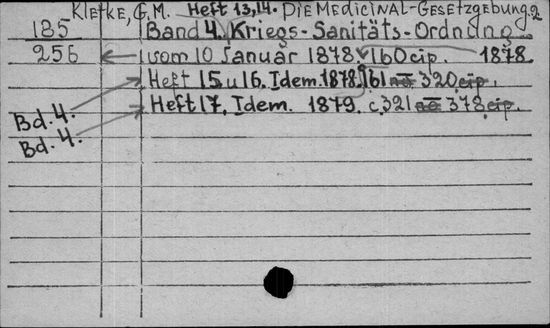 Kletke, G.M. Heft 13,14. Die Medicinal-Gesetzgebung. 2
185 Band 4. Kriegs-Sanitäts-Ordnung
256 vom 10 Januar 1878. 160 cip. 1878.
Heft 15 u 16. Idem. 1878. 161 320 cip.
Bd. 4. Heft 17. Idem. 1879. c. 321 378 cip.
Bd. 4.